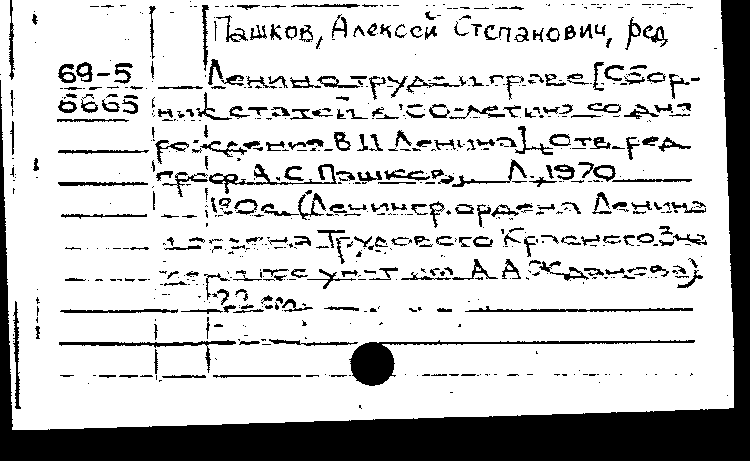 Пашков, Алексей Степанович, ред.
69-5 Ленин о труде и праве [Сбор-
6665 ник статей к 100-летию со дня
рождения В И Ленина]. Отв. ред.
проф. А. С. Пашков. Л., 1970
с. (Ленингр. ордена Ленина
и ордена Трудового Красного Зна
ун-т им А А Жданова)
22 см.